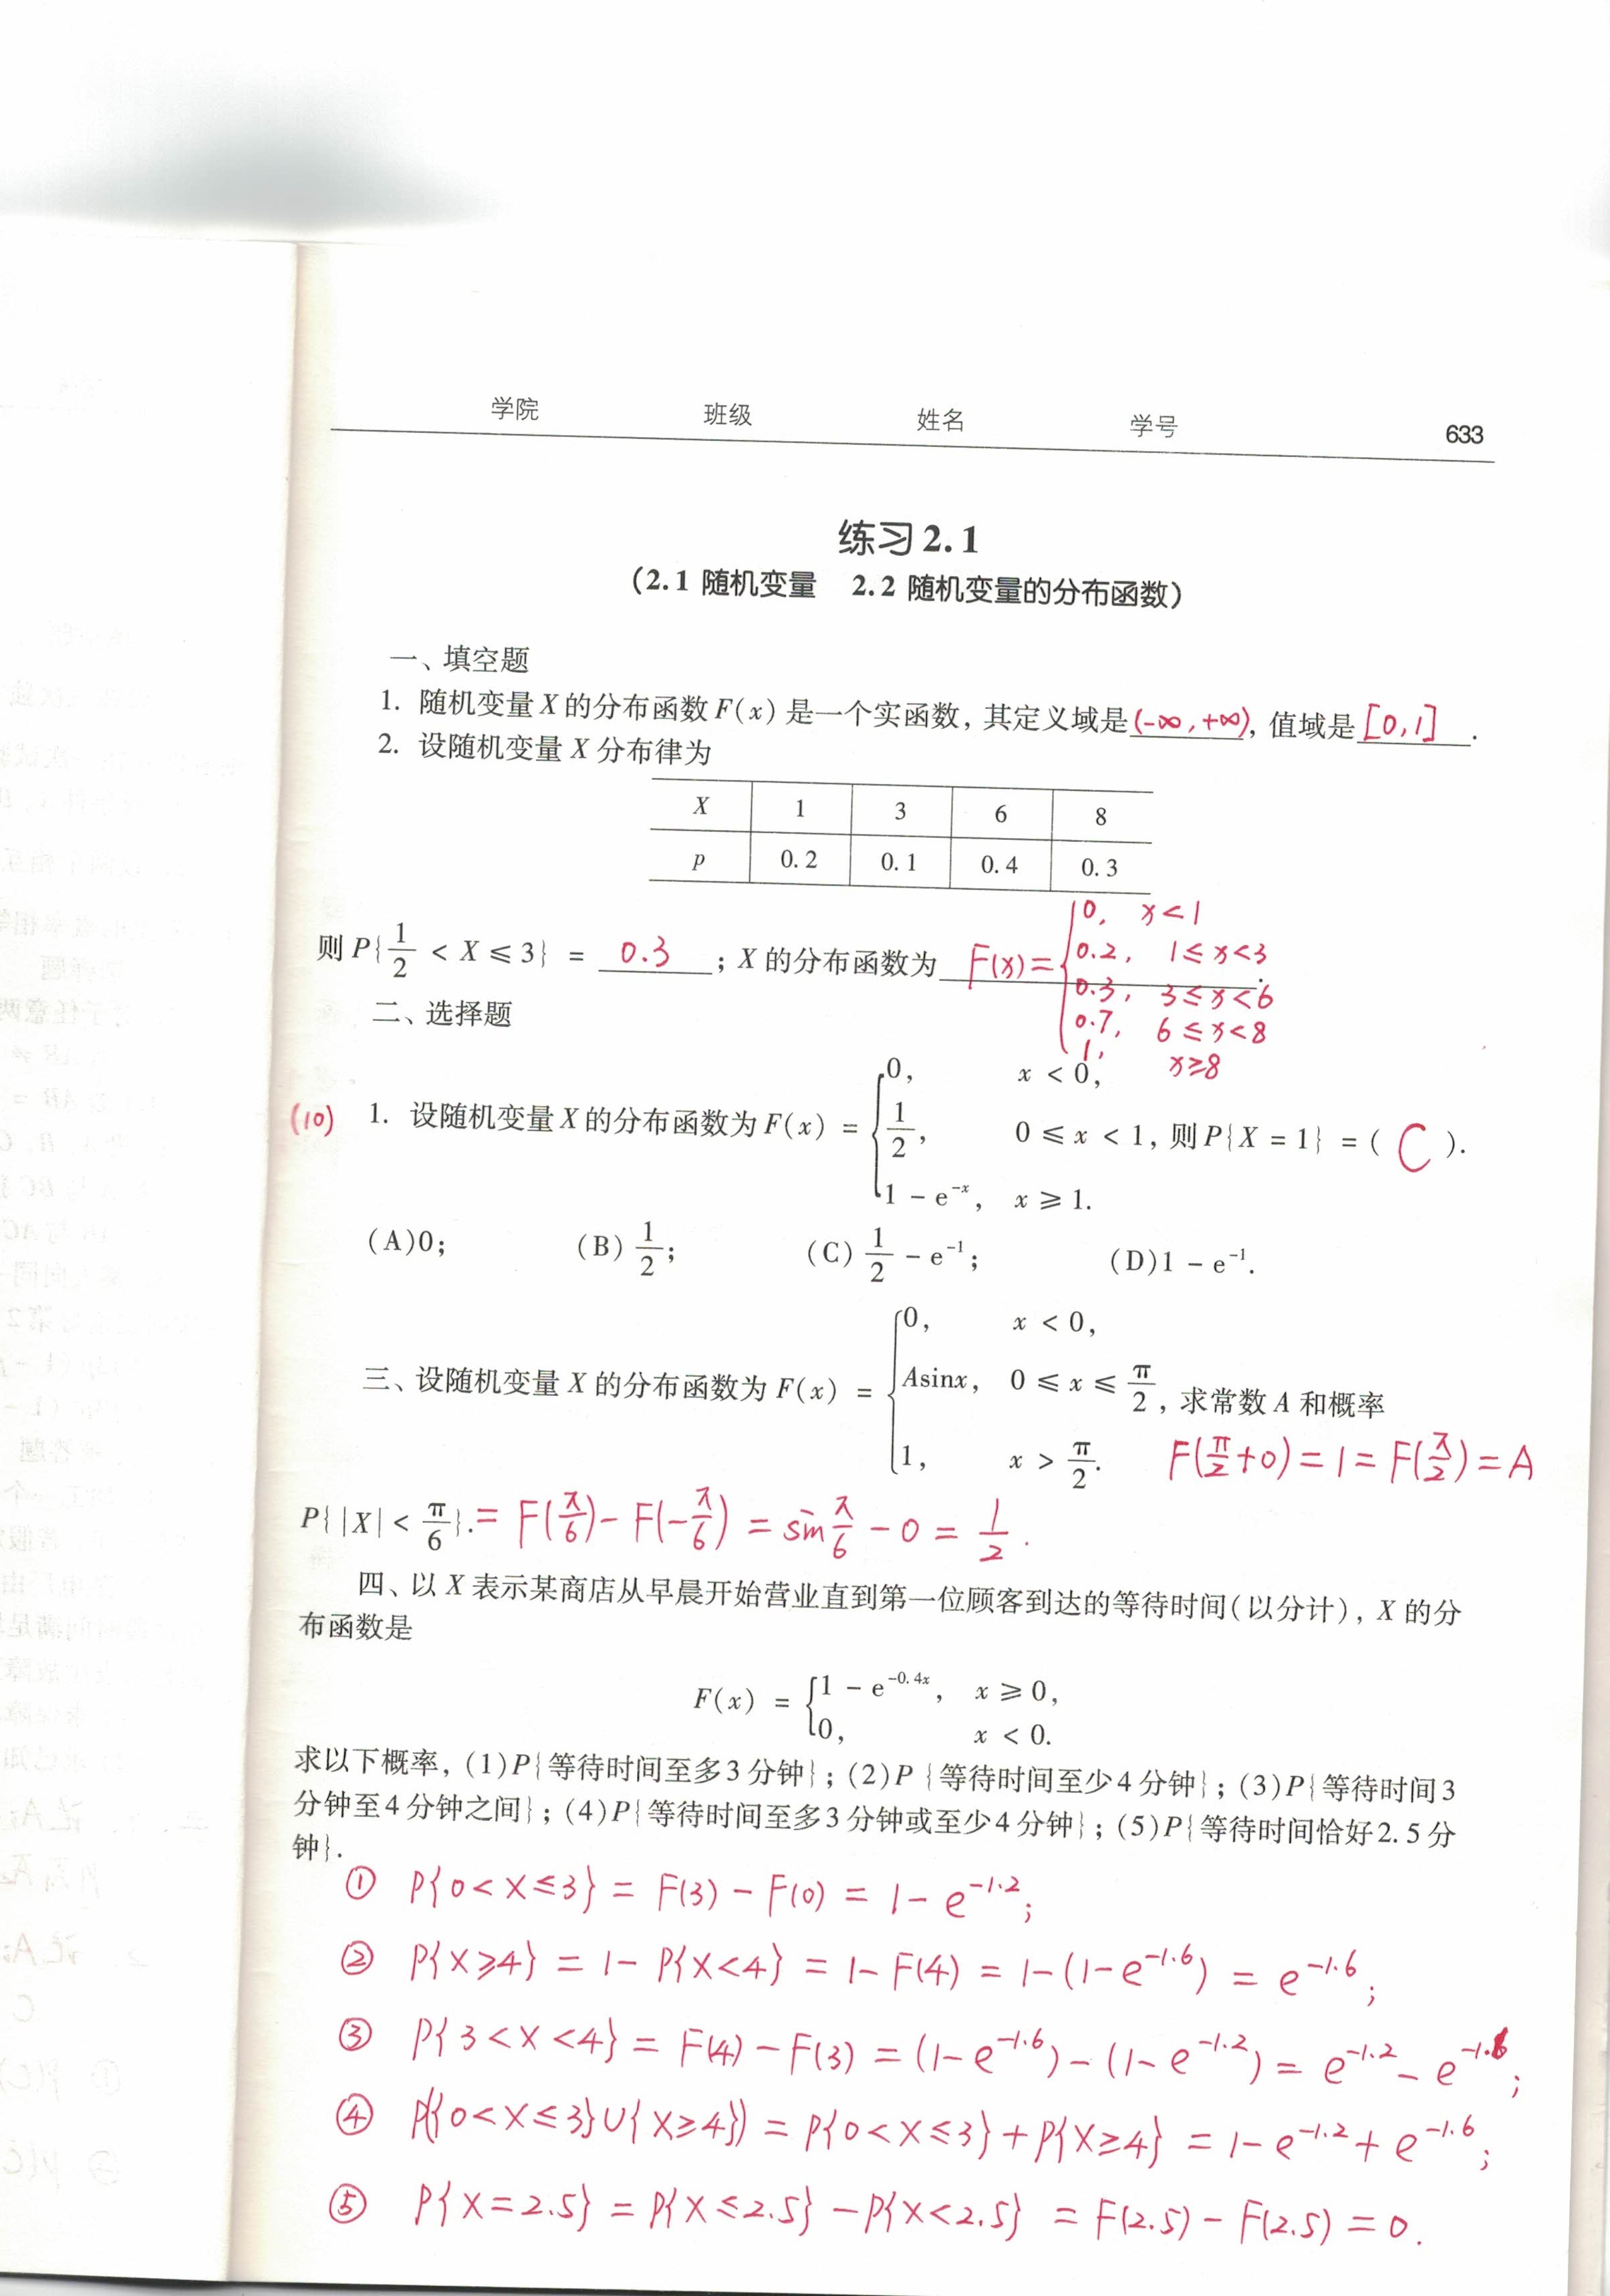 学院 班级 姓名 学号 633
练习2.1
(2.1 随机变量 2.2 随机变量的分布函数)
一、填空题
1. 随机变量X的分布函数F(x)是一个实函数, 其定义域是(-∞,+∞), 值域是[0,1].
2. 设随机变量X分布律为
X 1 3 6 8
p 0.2 0.1 0.4 0.3
0, x<1
则P{1/2 < X ≤ 3} = 0.3 ; X的分布函数为 F(x)= 0.2, 1≤x<3
0.3, 3≤x<6
二、选择题
0.7, 6≤x<8
1, x≥8
0, x < 0,
(10) 1. 设随机变量X的分布函数为F(x) = 1/2, 0 ≤ x < 1, 则P{X = 1} = ( C ).
1 - e^{-x}, x ≥ 1.
(A)0; (B)1/2; (C)1/2 - e^{-1}; (D)1 - e^{-1}.
0, x < 0,
三、设随机变量X的分布函数为F(x) = Asinx, 0 ≤ x ≤ π/2, 求常数A和概率
1, x > π/2. F(π/2+0)=1=F(π/2)=A
P{|X| < π/6}. = F(π/6)-F(-π/6) = sin π/6 - 0 = 1/2.
四、以X表示某商店从早晨开始营业直到第一位顾客到达的等待时间(以分计), X的分
布函数是
F(x) = 1 - e^{-0.4x}, x ≥ 0,
0, x < 0.
求以下概率, (1)P{等待时间至多3分钟}; (2)P{等待时间至少4分钟}; (3)P{等待时间3
分钟至4分钟之间}; (4)P{等待时间至多3分钟或至少4分钟}; (5)P{等待时间恰好2.5分
钟}.
① P{0<X≤3} = F(3)-F(0) = 1-e^{-1.2};
② P{X≥4} = 1-P{X<4} = 1-F(4) = 1-(1-e^{-1.6}) = e^{-1.6};
③ P{3<X<4} = F(4)-F(3) = (1-e^{-1.6})-(1-e^{-1.2}) = e^{-1.2}-e^{-1.6};
④ P({0<X≤3}∪{X≥4}) = P{0<X≤3}+P{X≥4} = 1-e^{-1.2}+e^{-1.6};
⑤ P{X=2.5} = P{X≤2.5}-P{X<2.5} = F(2.5)-F(2.5) = 0.